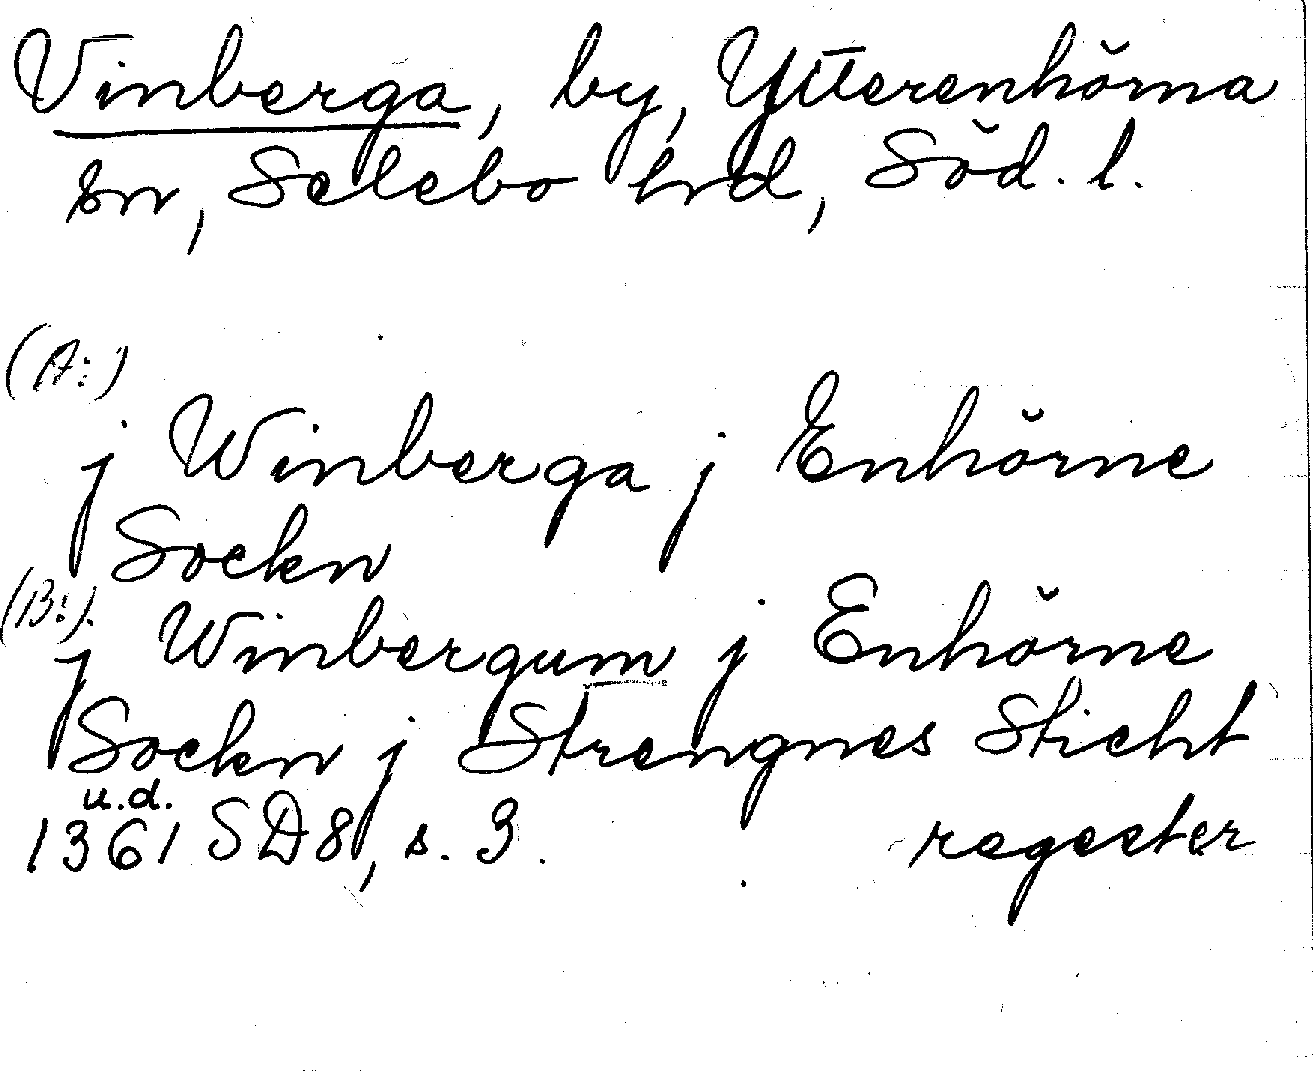 Vinberga, by, Ytterenhörna
sn, Selebo hrd, Söd. l.
(A:)
j Winberga j Enhörne
Sockn
(B:).
j Winbergum j Enhörne
Sockn j Strengnes Sticht
u.d.
1361 SD8, s. 3. regester